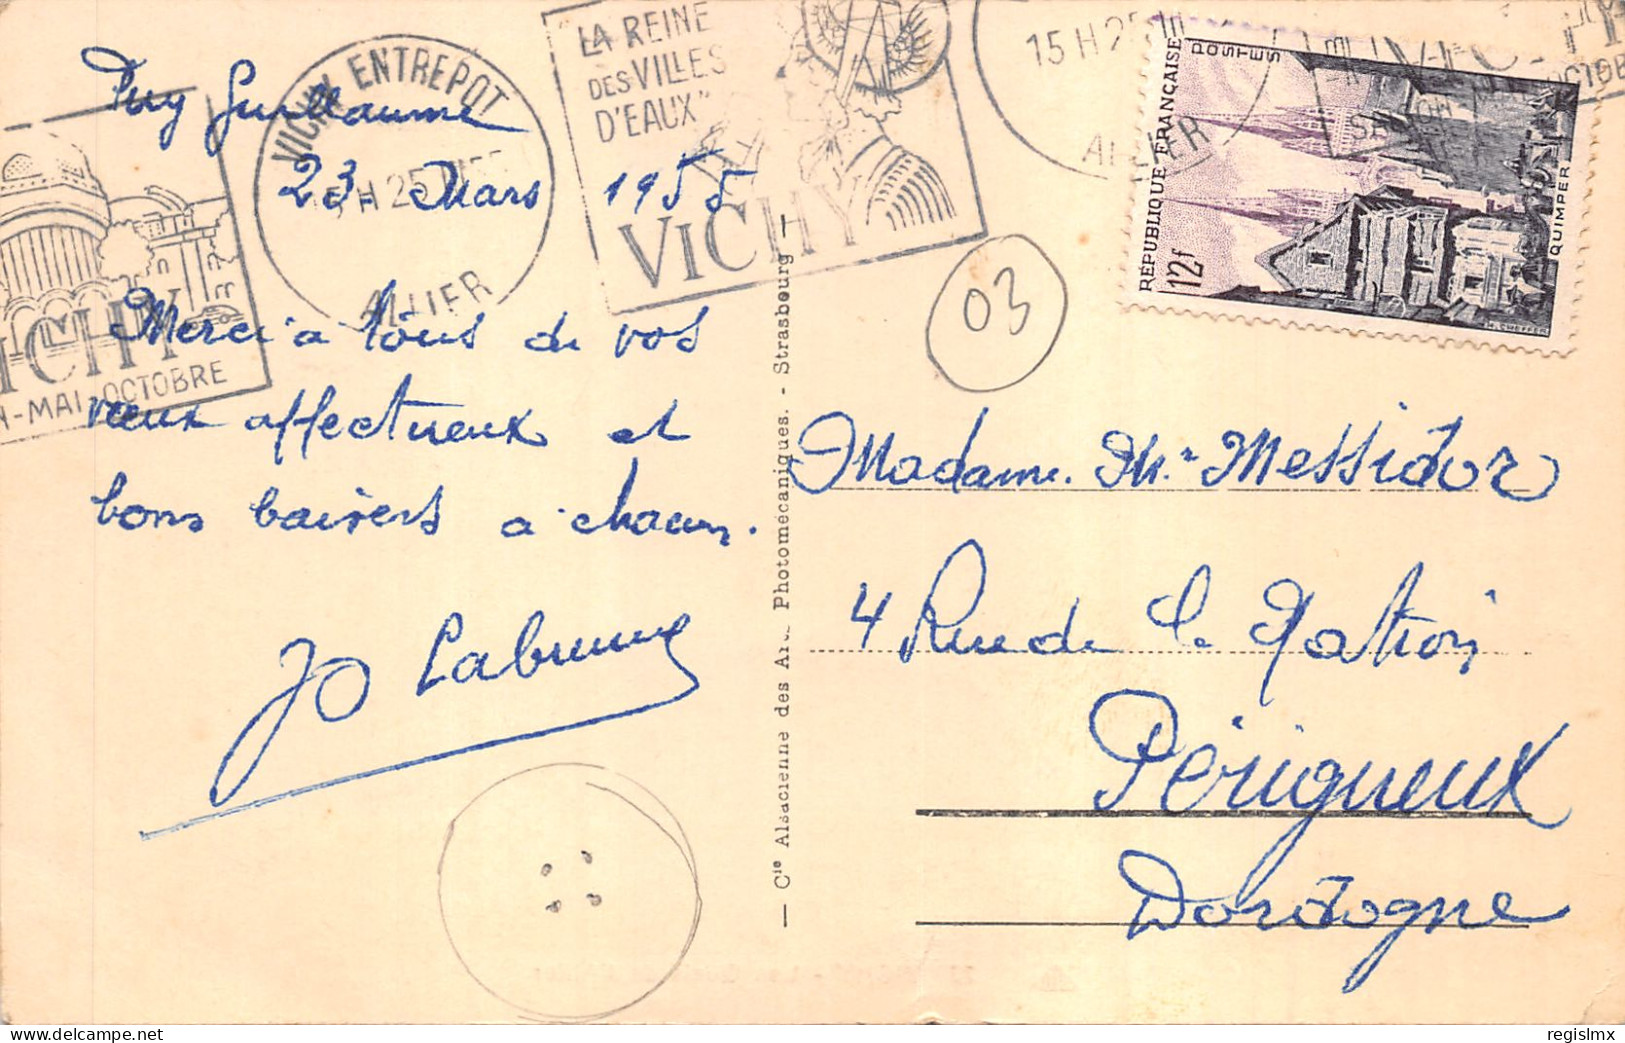 Puy Guillaume
23 Mars 1955
Merci à tous de vos
vœux affectueux et
bons baisers à chacun.
Jo Labrune
VICHY ENTREPOT
15 H 25
ALLIER
"LA REINE
DES VILLES
D'EAUX"
VICHY
VICHY
MAI-OCTOBRE
15 H 25
ALLIER
RÉPUBLIQUE FRANÇAISE
POSTES
12f
QUIMPER
03
— Cie Alsacienne des Arts Photomécaniques. - Strasbourg —
Madame. Messidor
4 Rue de
Périgueux
Dordogne
regislmx